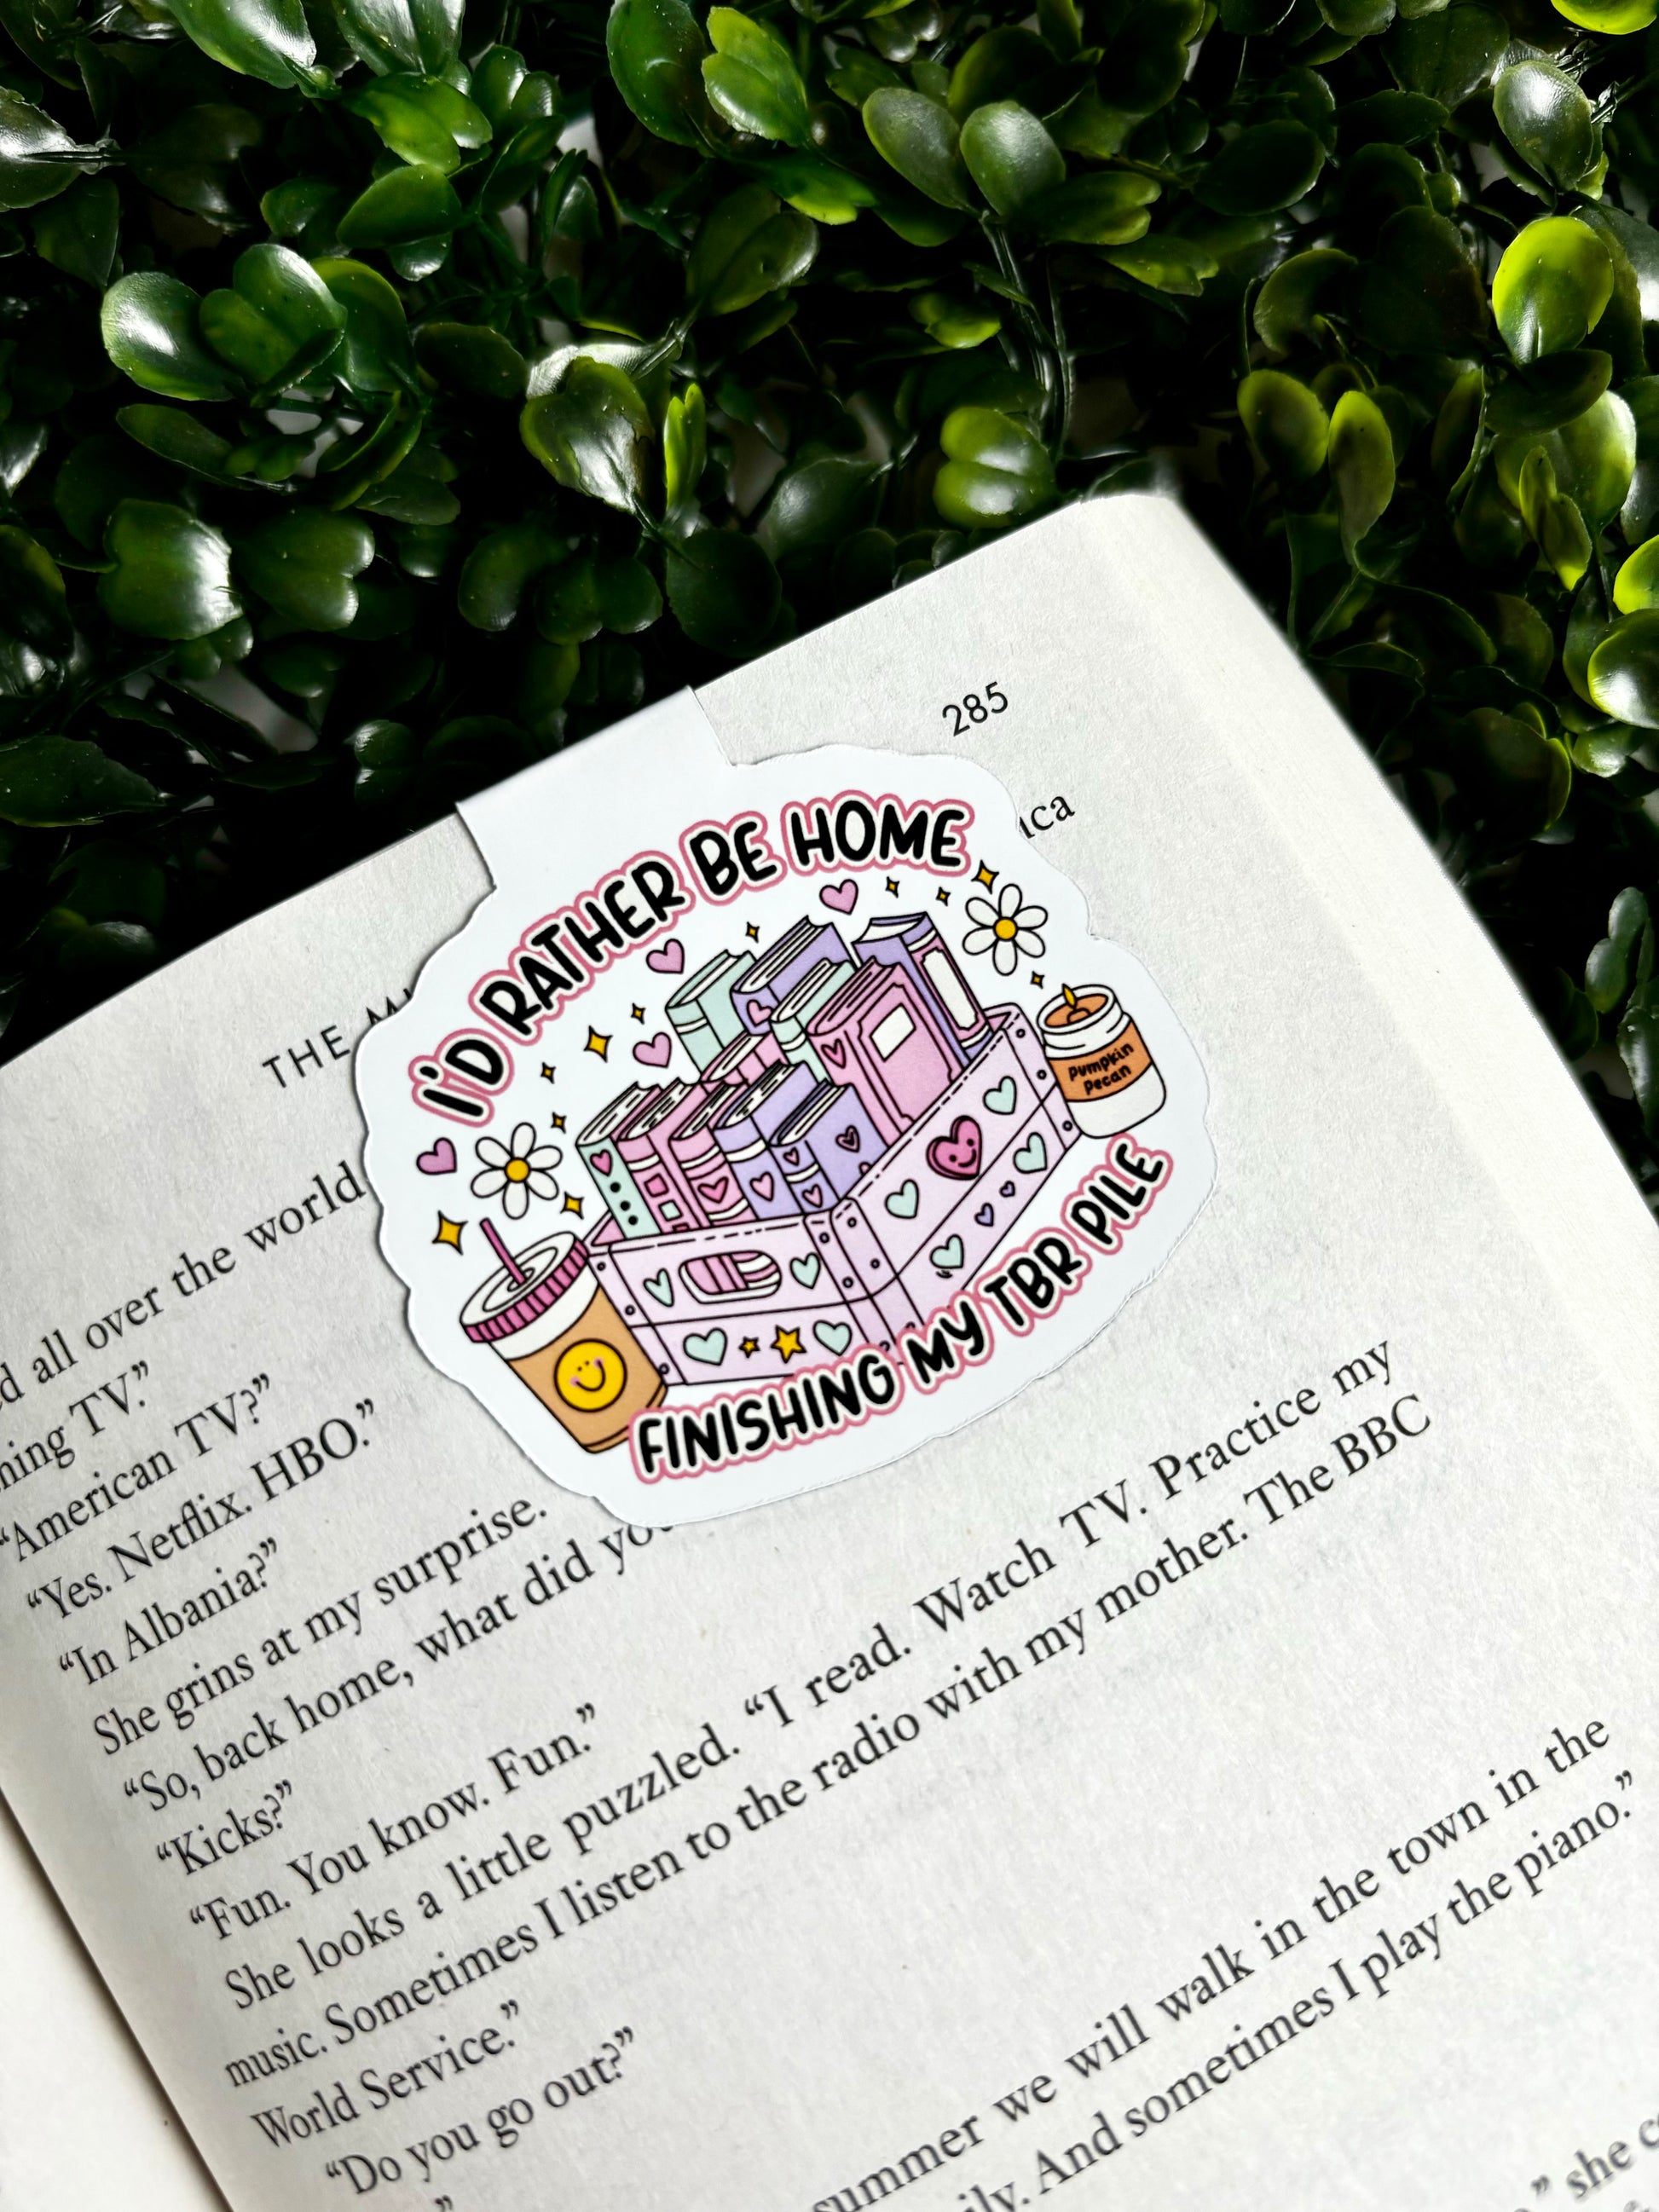 285
THE
I'D RATHER BE HOME
Pumpkin
Pecan
FINISHING MY TBR PILE
all over the world
TV."
"American TV?"
"Yes. Netflix. HBO."
"In Albania?"
She grins at my surprise.
"So, back home, what did
"Kicks?"
"Fun. You know. Fun."
She looks a little puzzled. "I read. Watch TV. Practice my
music. Sometimes I listen to the radio with my mother. The BBC
World Service."
"Do you go out?"
summer we will walk in the town in the
And sometimes I play the piano."
" she